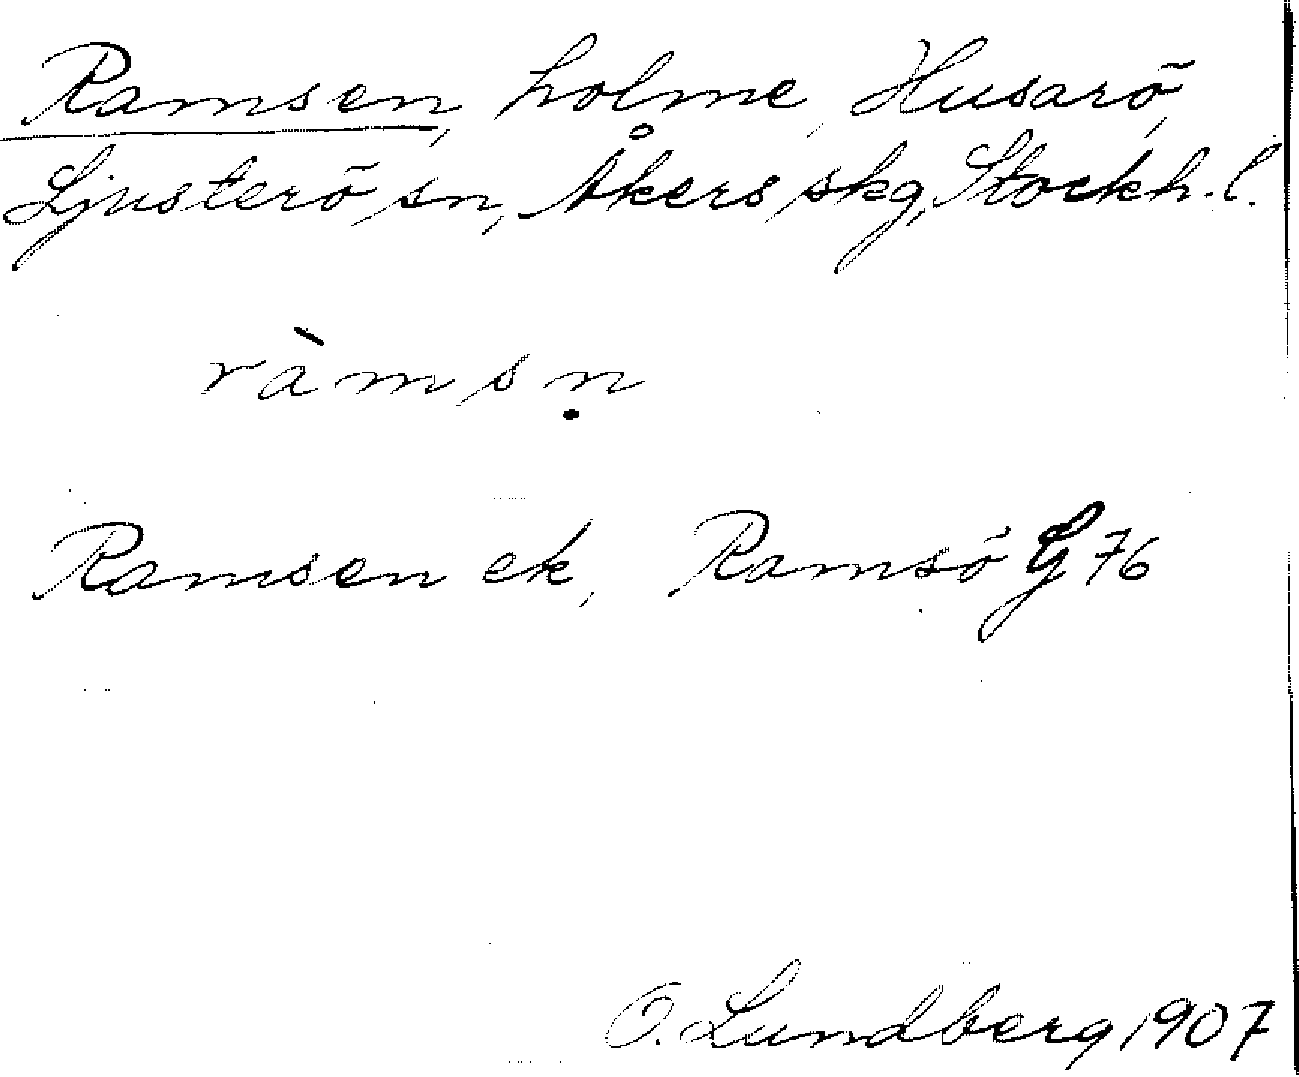 Ramsen, holme, Husarö,
Ljusterö sn, Åkers skg, Stockh. l.
ràmsṇ
Ramsen ek, Ramsö G 76
O. Lundberg 1907